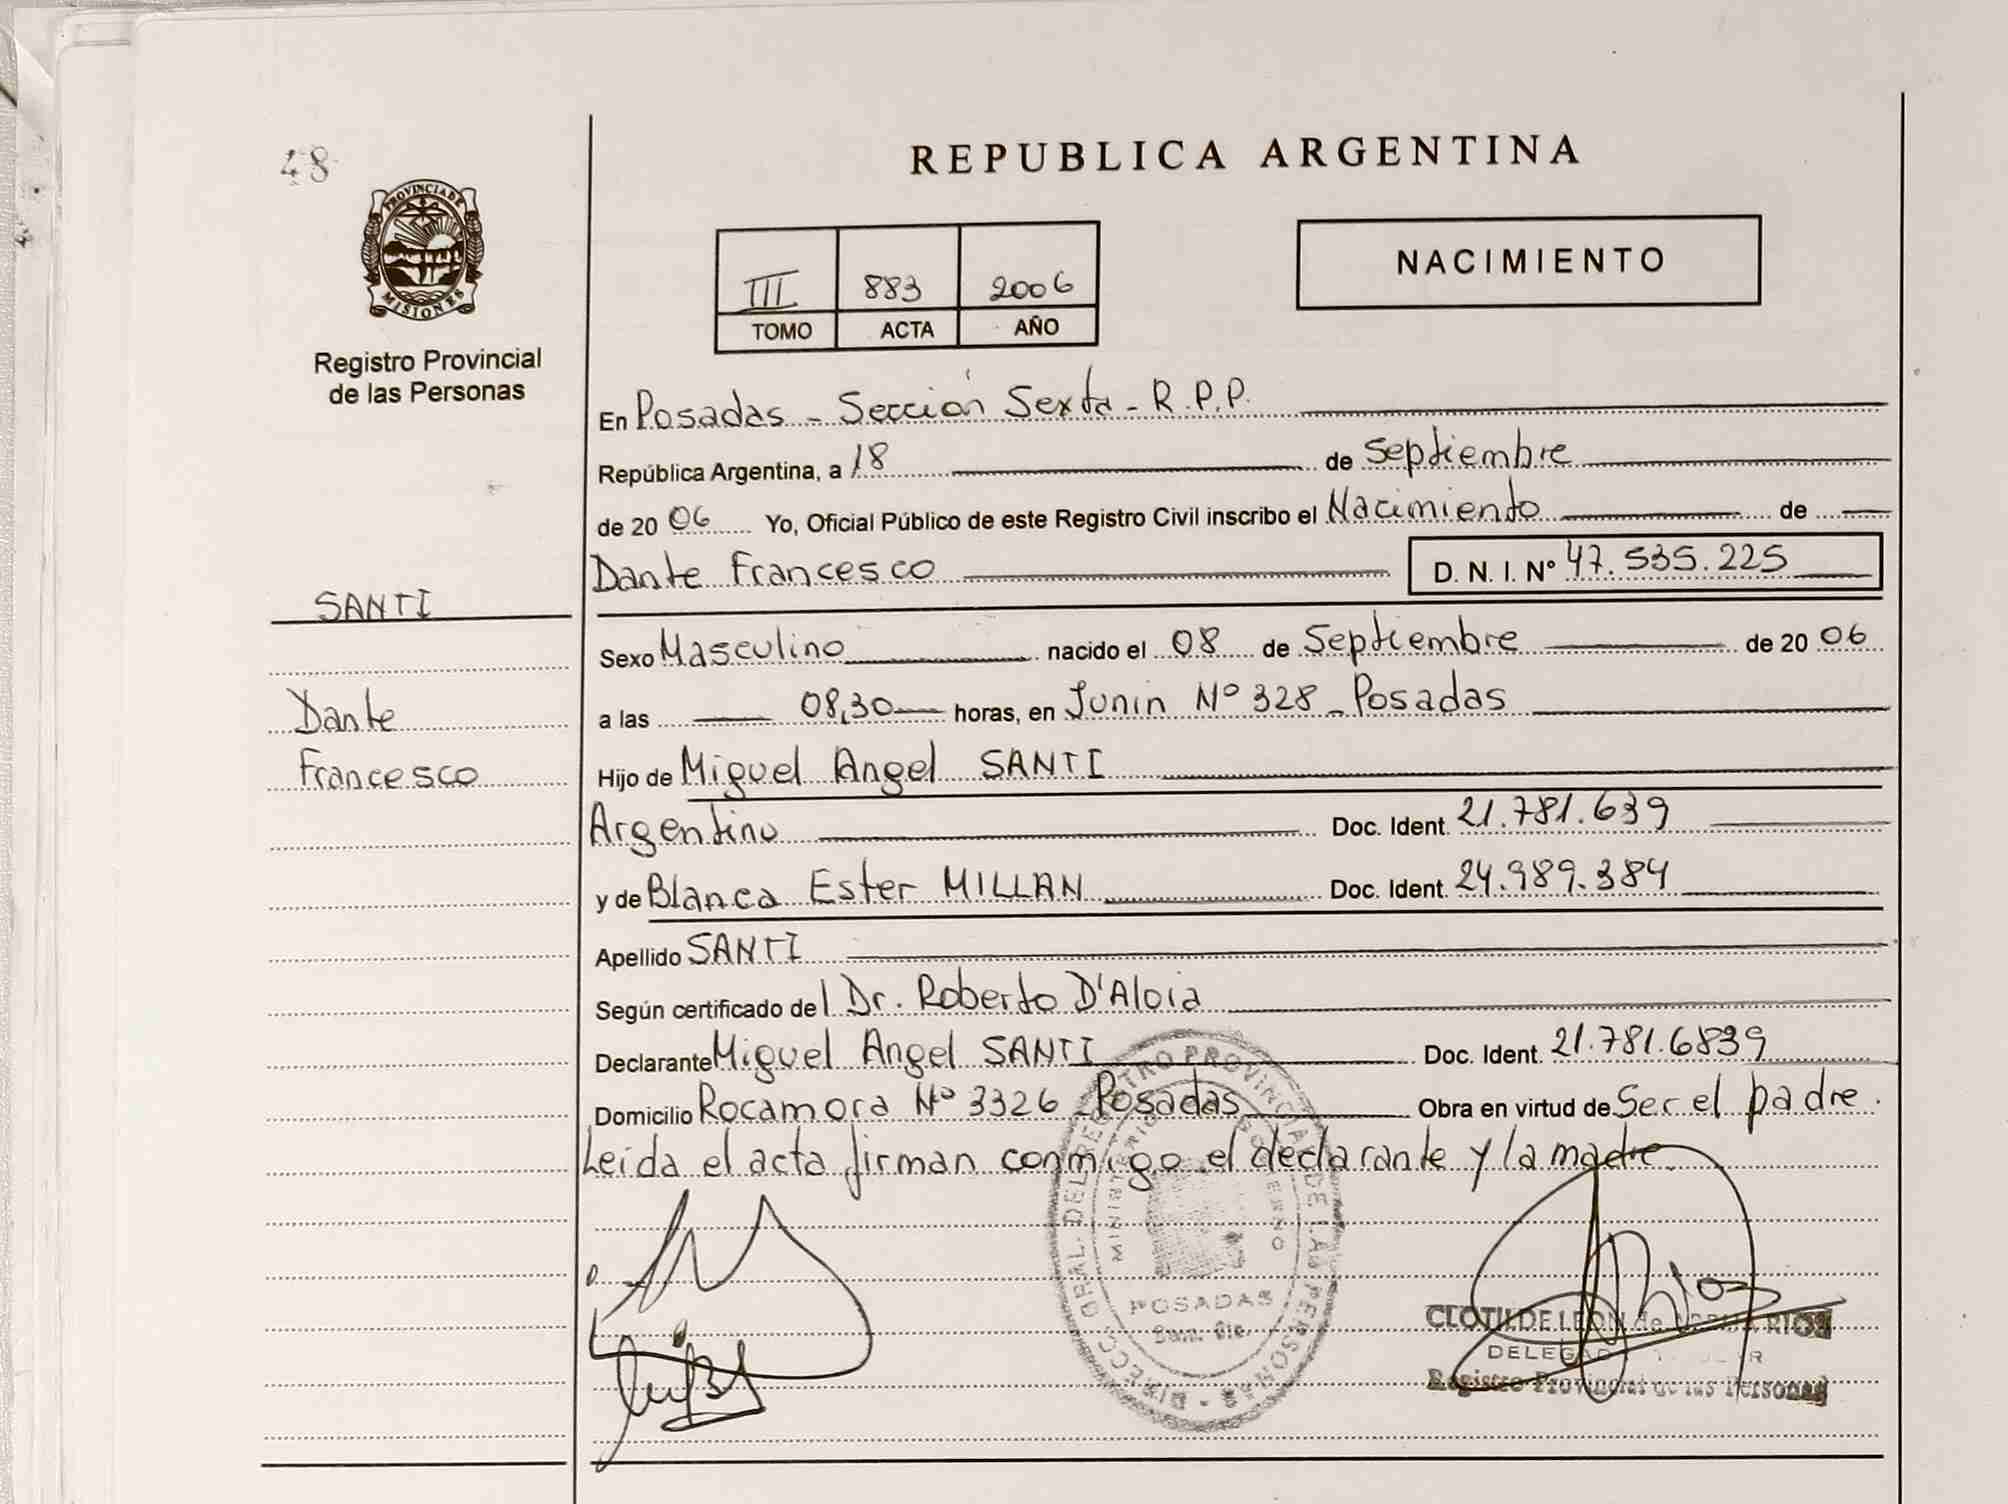 48
PROVINCIA DE
MISIONES
Registro Provincial
de las Personas
REPUBLICA ARGENTINA
III 883 2006
TOMO ACTA AÑO
NACIMIENTO
En Posadas - Sección Sexta - R.P.P.
República Argentina, a 18 de Septiembre
de 2006 Yo, Oficial Público de este Registro Civil inscribo el Nacimiento de
Dante Francesco D. N. I. Nº 47.535.225
SANTI
Sexo Masculino nacido el 08 de Septiembre de 2006
Dante
Francesco
a las 08,30 horas, en Junin Nº 328 - Posadas
Hijo de Miguel Angel SANTI
Argentino Doc. Ident. 21.781.639
y de Blanca Ester MILLAN Doc. Ident. 24.989.384
Apellido SANTI
Según certificado del Dr. Roberto D'Aloia
Declarante Miguel Angel SANTI Doc. Ident. 21.781.6839
Domicilio Rocamora Nº 3326 - Posadas Obra en virtud de Ser el padre.
Leída el acta firman conmigo el declarante y la madre
DIRECC. GRAL. DEL REGISTRO PROVINCIAL DE LAS PERSONAS
MINISTERIO GOBIERNO
POSADAS
CLOTILDE LEON de RIOS
Registro Provincial de las Personas